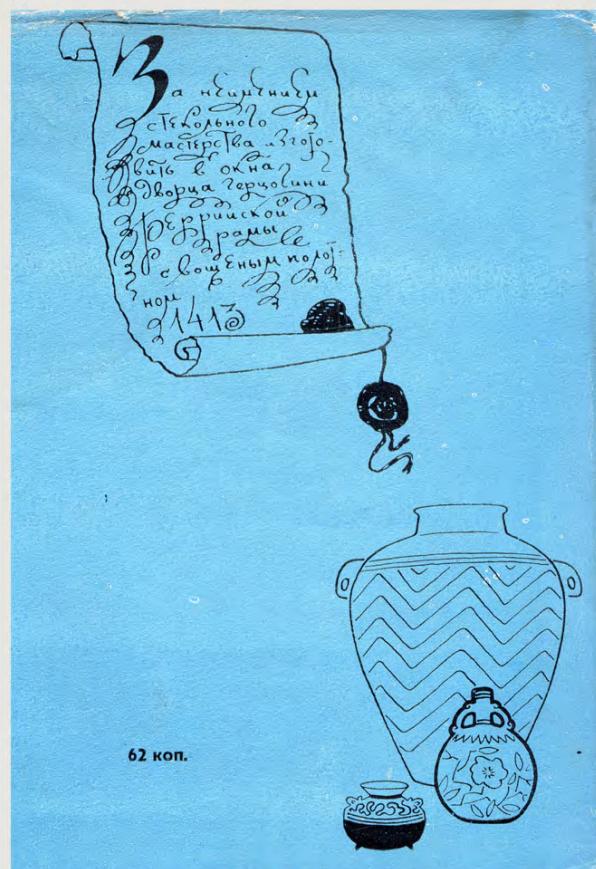 За неимением
стекольного
мастерства изгото-
вить в окна
дворца герцогини
Беррийской
рамы
с вощеным полот-
ном
1413
62 коп.